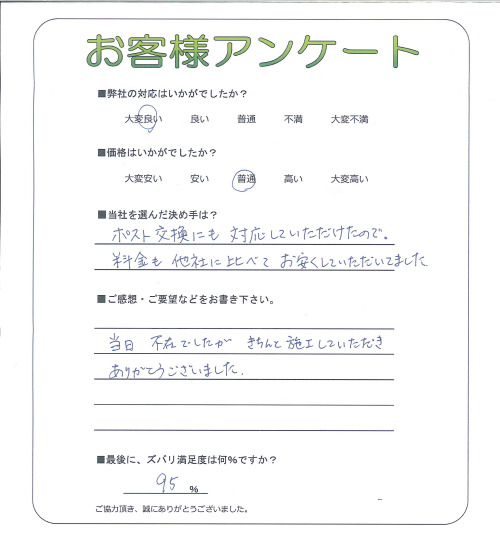 お客様アンケート
■弊社の対応はいかがでしたか？
大変良い 良い 普通 不満 大変不満
■価格はいかがでしたか？
大変安い 安い 普通 高い 大変高い
■当社を選んだ決め手は？
ポスト交換にも対応していただけたので。
料金も他社に比べてお安くしていただいてました
■ご感想・ご要望などをお書き下さい。
当日 不在でしたが きちんと施工していただき
ありがとうございました.
■最後に、ズバリ満足度は何%ですか？
95 %
ご協力頂き、誠にありがとうございました。